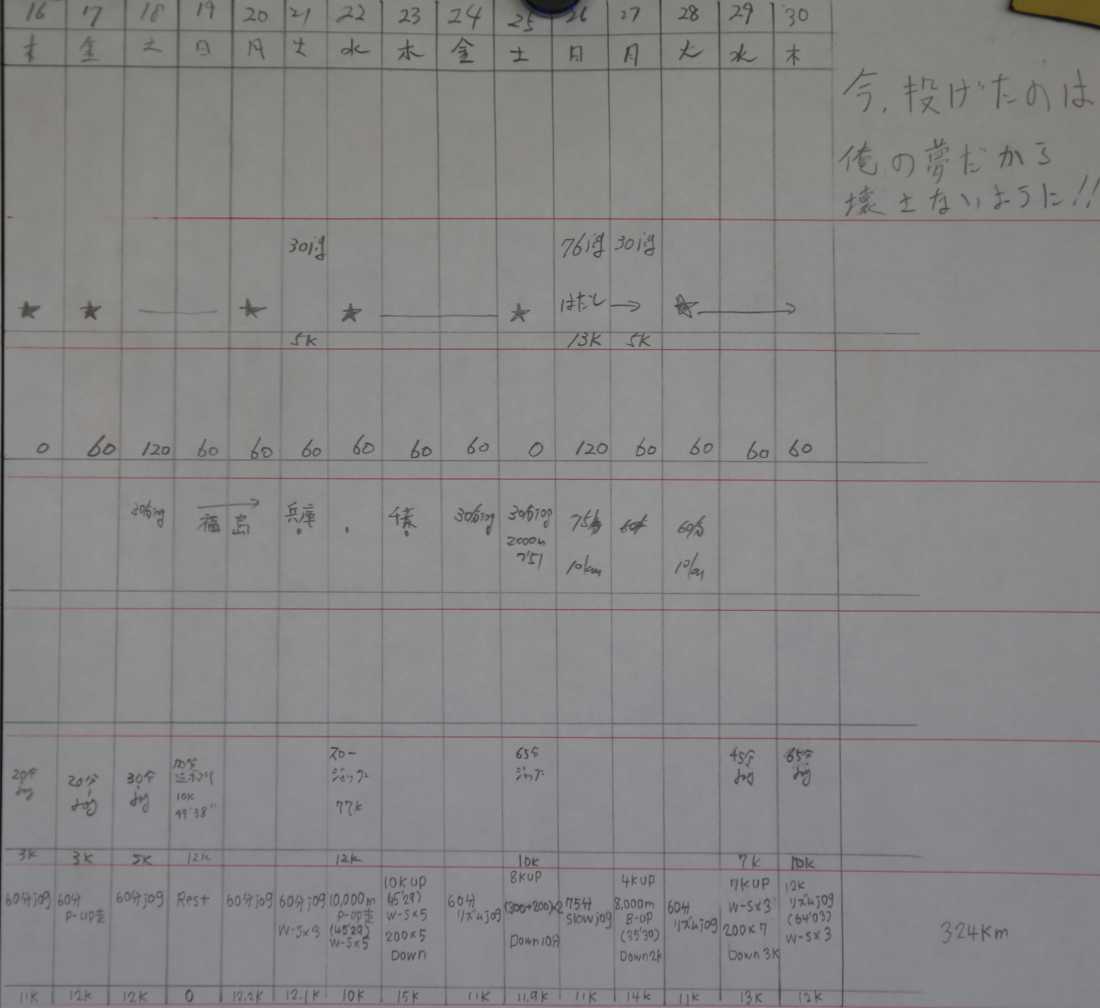 16 17 18 19 20 21 22 23 24 25 26 27 28 29 30
木 金 土 日 月 火 水 木 金 土 日 月 火 水 木
今、投げたのは
俺の夢だから
壊さないように!!
30jg 76jg 30jg
★ ★ ★ ★ ★ はだし → ★ →
5K 13K 5K
0 60 120 60 60 60 60 60 60 0 120 60 60 60 60
30分jog 福島 兵庫 千葉 30分jog 30分jog 75分 60分 60分
2000m 10km 10km
7'51
20分 20分 30分 70分 70- 65分 45分 65分
jog jog jog ジョッグ ジョグ jog jog
10K 77K
49'38"
3K 3K 5K 12K 12K 10K 7K 10K
60分jog 60分 60分jog Rest 60分jog 60分jog 10,000m 10KUP 60分 8KUP 75分 4KUP 60分 7KUP 12K
P-UP走 W-S×3 P-UP走 (45'29) リズムjog (300+200)×2 Slowjog 8,000m リズムjog W-S×3 リズムjog
(45'29) W-S×5 Down10分 B-UP 200×7 (64'03)
W-S×5 200×5 (35'30) Down3K W-S×3
Down Down2K
324Km
11K 12K 12K 0 12.2K 12.1K 10K 15K 11K 11.9K 11K 14K 11K 13K 12K